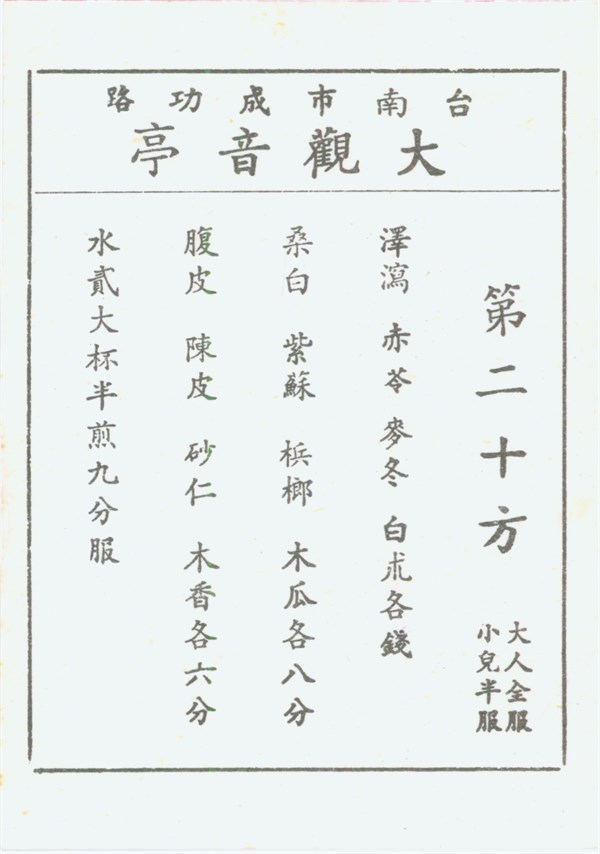 台南市成功路
大觀音亭
第二十方
大人全服
小兒半服
澤瀉 赤苓 麥冬 白朮各錢
桑白 紫蘇 梹榔 木瓜各八分
腹皮 陳皮 砂仁 木香各六分
水貳大杯半煎九分服